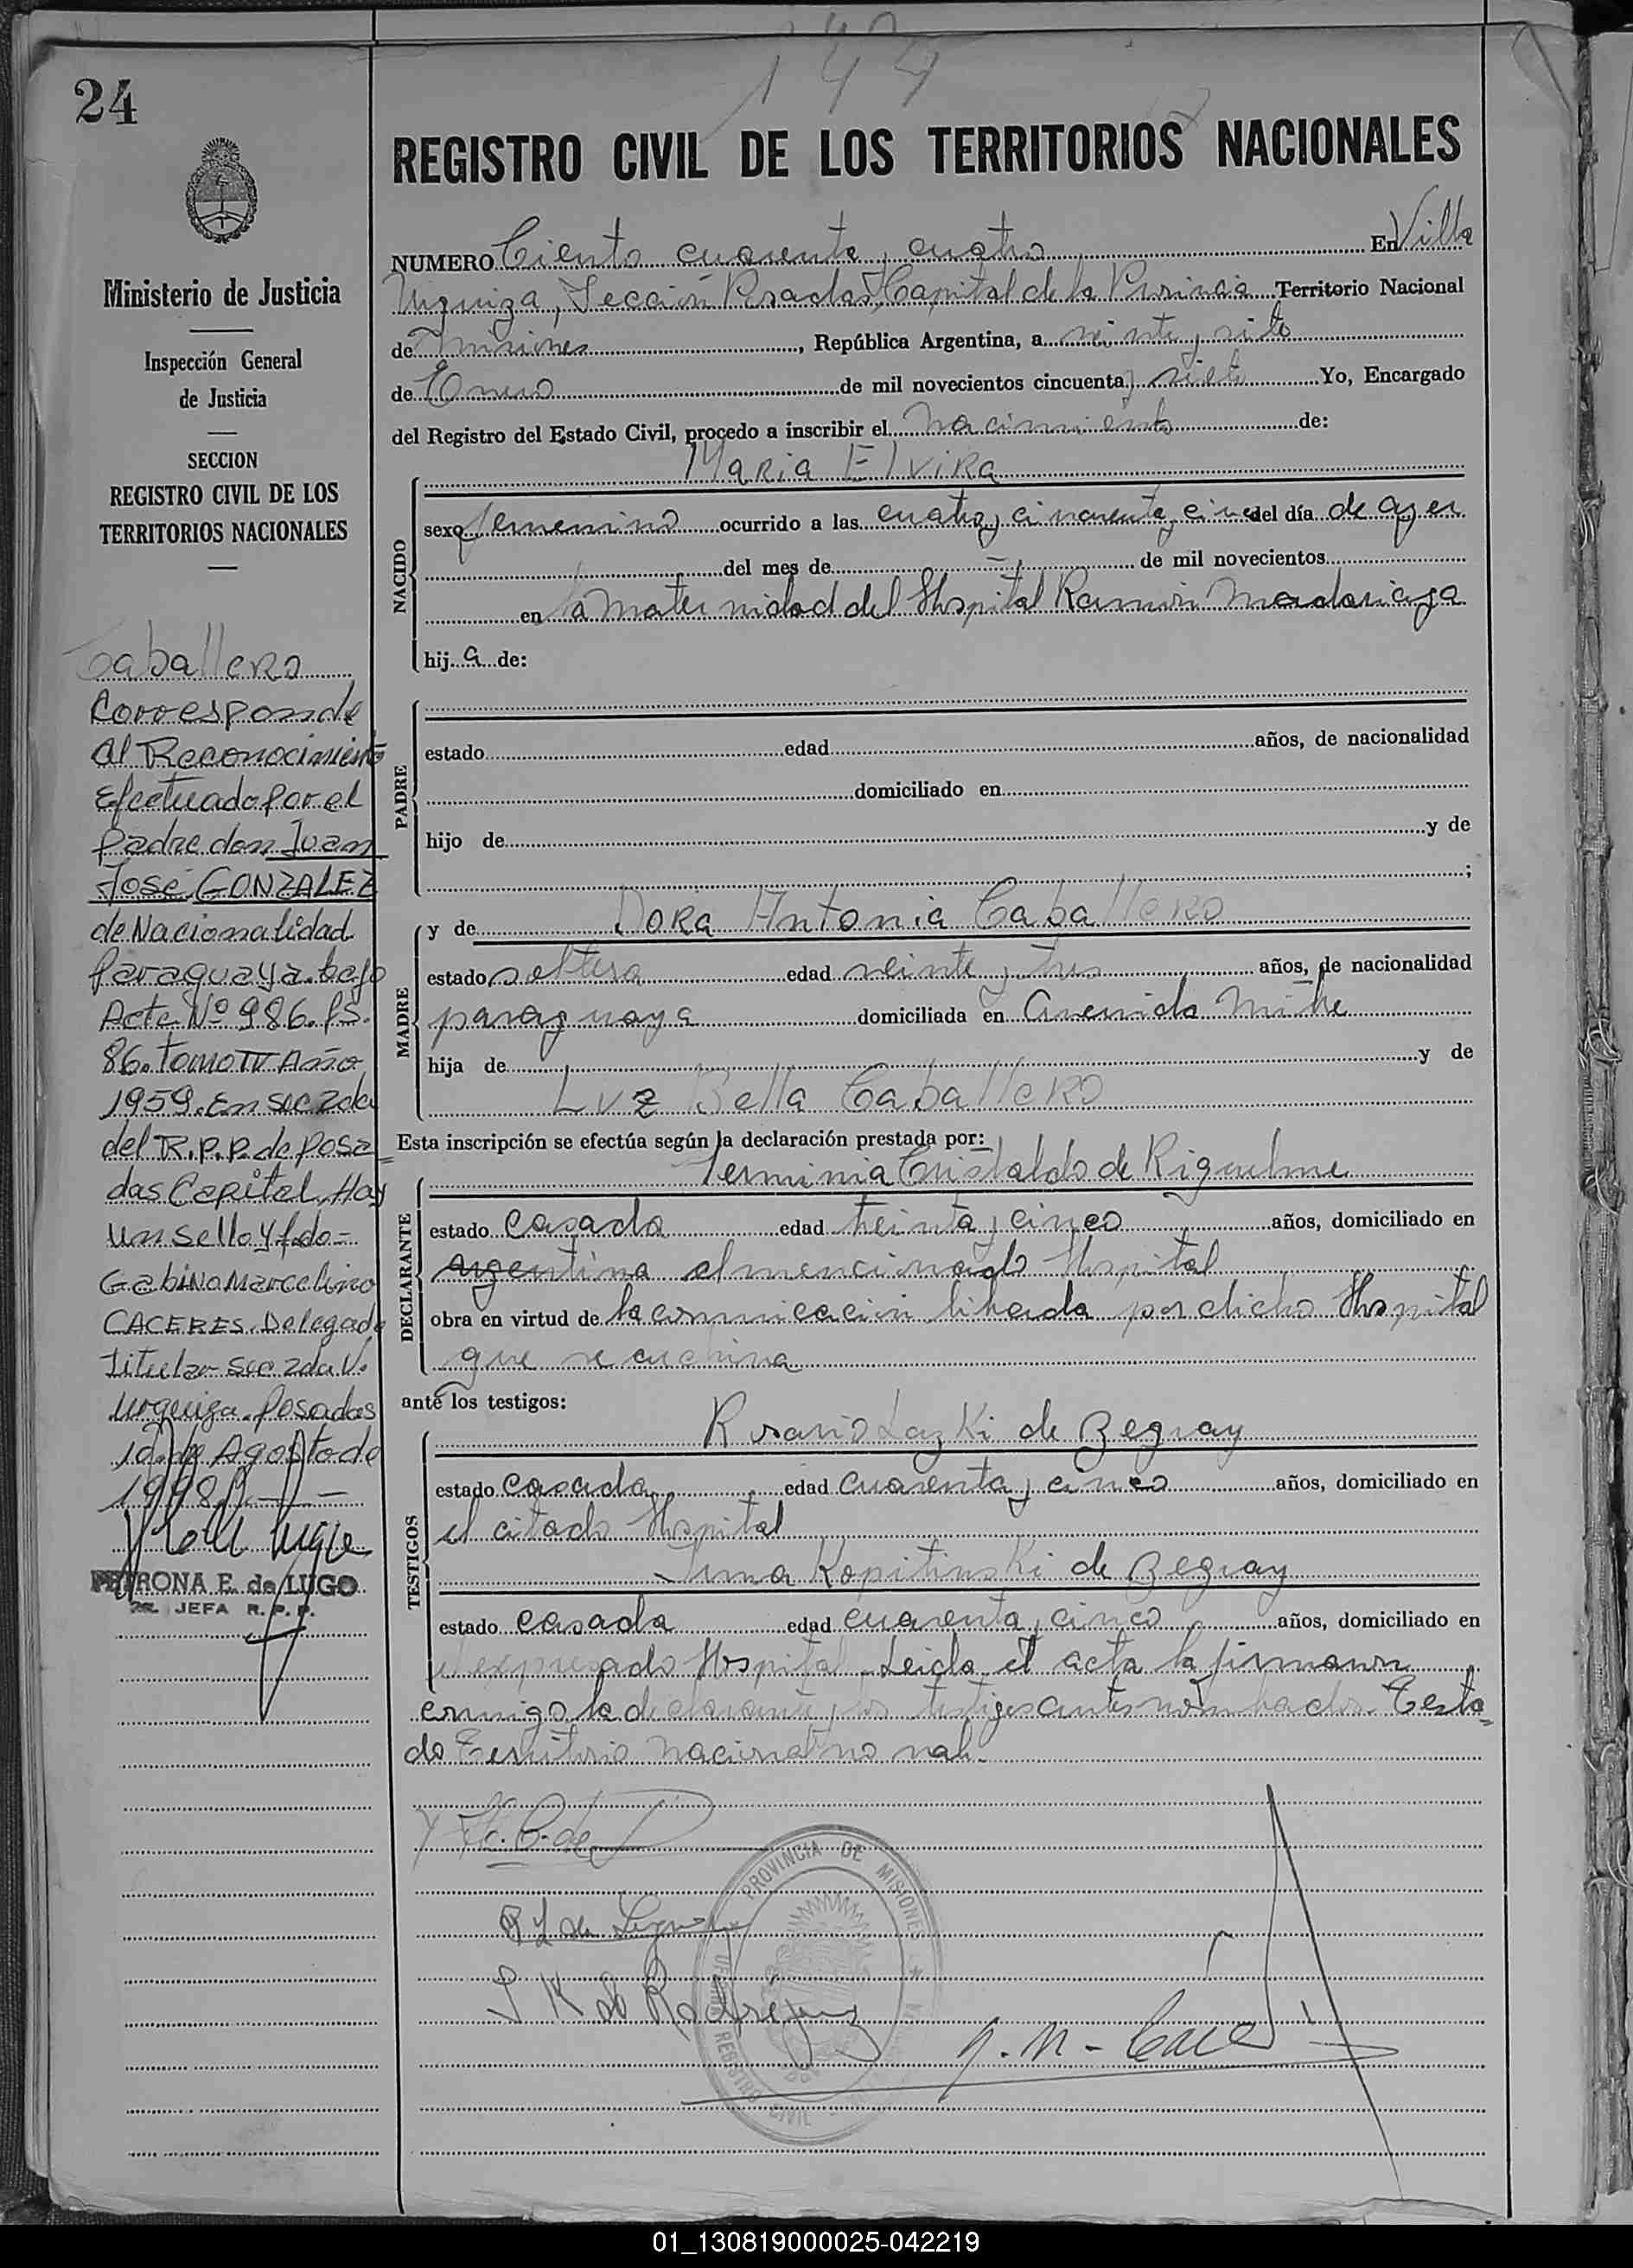 144
24
REGISTRO CIVIL DE LOS TERRITORIOS NACIONALES
Ministerio de Justicia
Inspección General
de Justicia
SECCION
REGISTRO CIVIL DE LOS
TERRITORIOS NACIONALES
Caballero
Corresponde
Al Reconocimiento
Efectuado por el
padre don Juan
José GONZALEZ
de Nacionalidad
paraguaya bajo
Acta Nº 986. fs.
86. Tomo IV Año
1959. En sec 2da
del R.P.P. de Posa
das Capital. Hay
un sello y fdo=
Gabino Marcelino
CACERES. Delegado
Titular Sec 2da V.
Urquiza. Posadas
10 de Agosto de
1998
PETRONA E. de LUGO
JEFA R.P.P.
NUMERO Ciento cuarenta y cuatro En Villa
Urquiza, Sección Posadas, Capital de la Provincia Territorio Nacional
de Misiones, República Argentina, a veinte y siete
de Enero de mil novecientos cincuenta y siete Yo, Encargado
del Registro del Estado Civil, procedo a inscribir el nacimiento de:
NACIDO
Maria Elvira
sexo femenino ocurrido a las cuatro y cincuenta y cinco del día de ayer
del mes de - de mil novecientos
en la Maternidad del Hospital Ramón Madariaga
hij a de:
PADRE
estado edad años, de nacionalidad
domiciliado en
hijo de y de
;
MADRE
y de Dora Antonia Caballero
estado soltera edad veinte y tres años, de nacionalidad
paraguaya domiciliada en Avenida Mitre
hija de y de
Luz Bella Caballero
Esta inscripción se efectúa según la declaración prestada por:
DECLARANTE
Herminia Cristaldo de Riquelme
estado casada edad treinta y cinco años, domiciliado en
argentina el mencionado Hospital
obra en virtud de la comunicación librada por dicho Hospital
que se archiva
ante los testigos:
TESTIGOS
Rosario Lazki de
estado casada edad cuarenta y cinco años, domiciliado en
el citado Hospital
Kopitinski de
estado casada edad cuarenta y cinco años, domiciliado en
el expresado Hospital. Leida el acta la firmaron
conmigo la declarante y los testigos antes nombrados. Testa=
do Territorio Nacional no vale.
PROVINCIA DE MISIONES
REGISTRO CIVIL
01_130819000025-042219